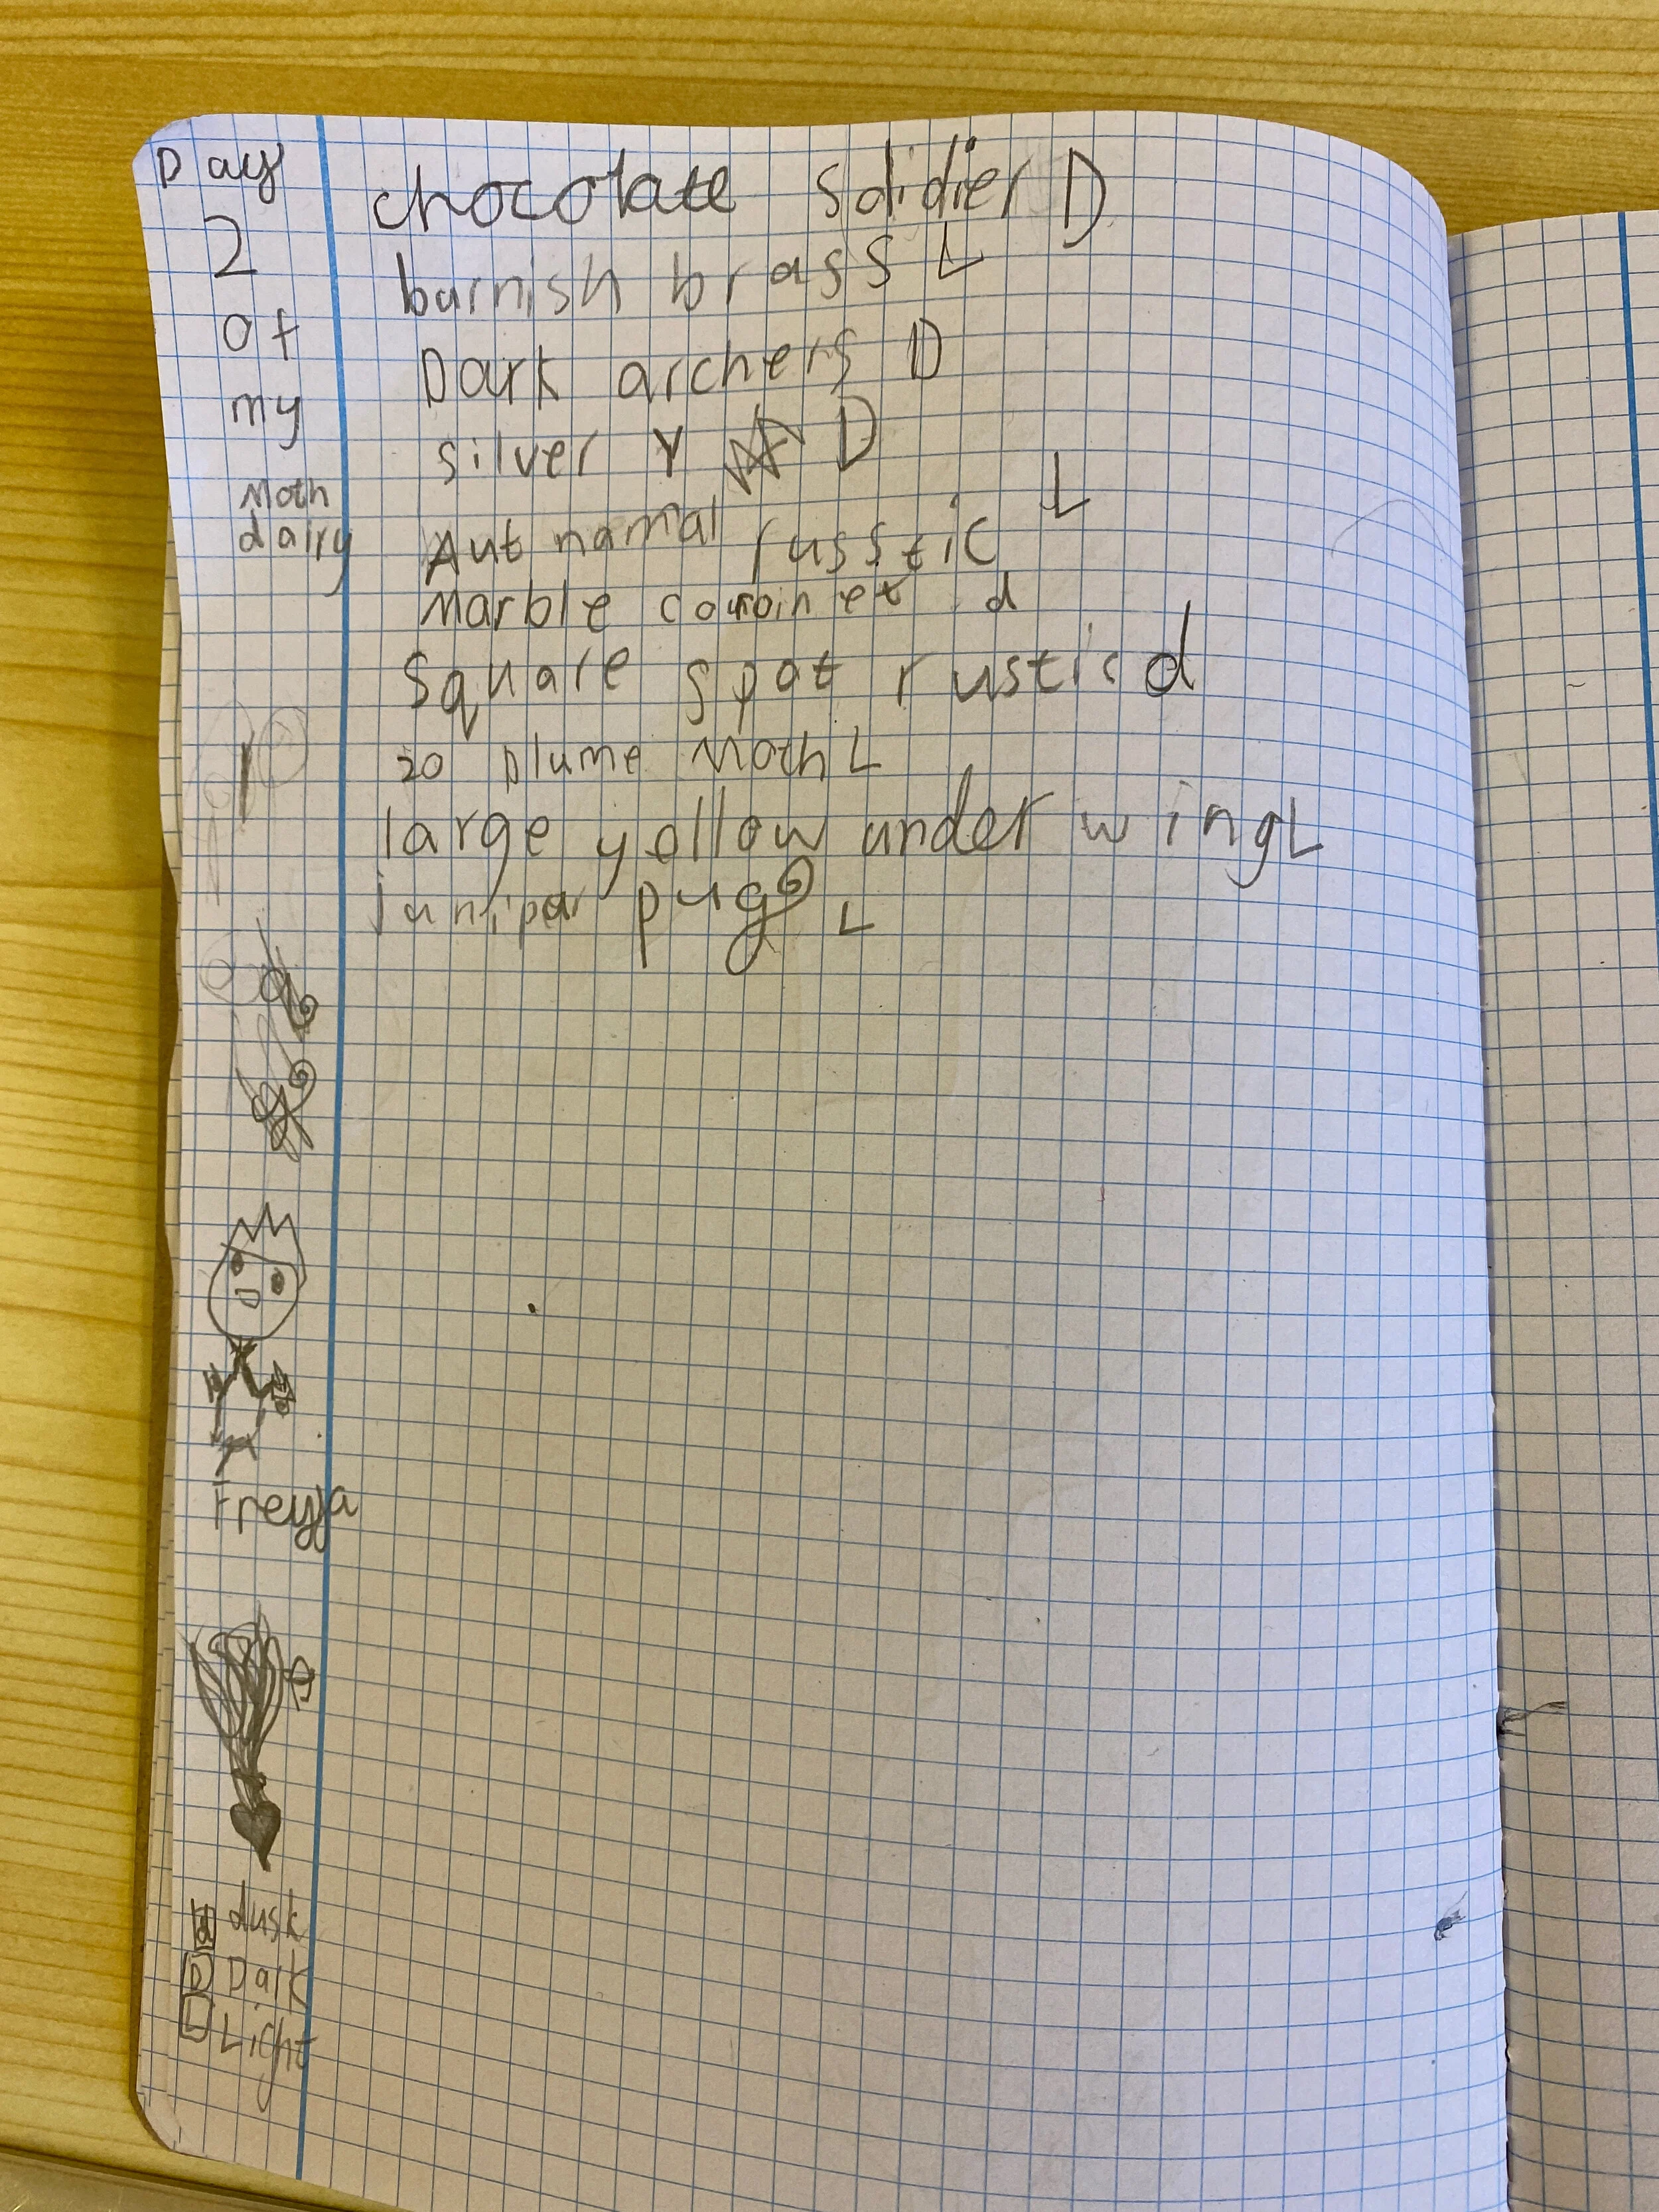 Day
2
of
my
Moth
dairy
chocolate Soldier D
burnish brass L
Dark archers D
silver Y D
Autnamal russtic L
Marble d
Square spot rustic d
20 plume Moth L
large yollow under wing L
juniper pug L
Freyja
d dusk
D Dark
L Light